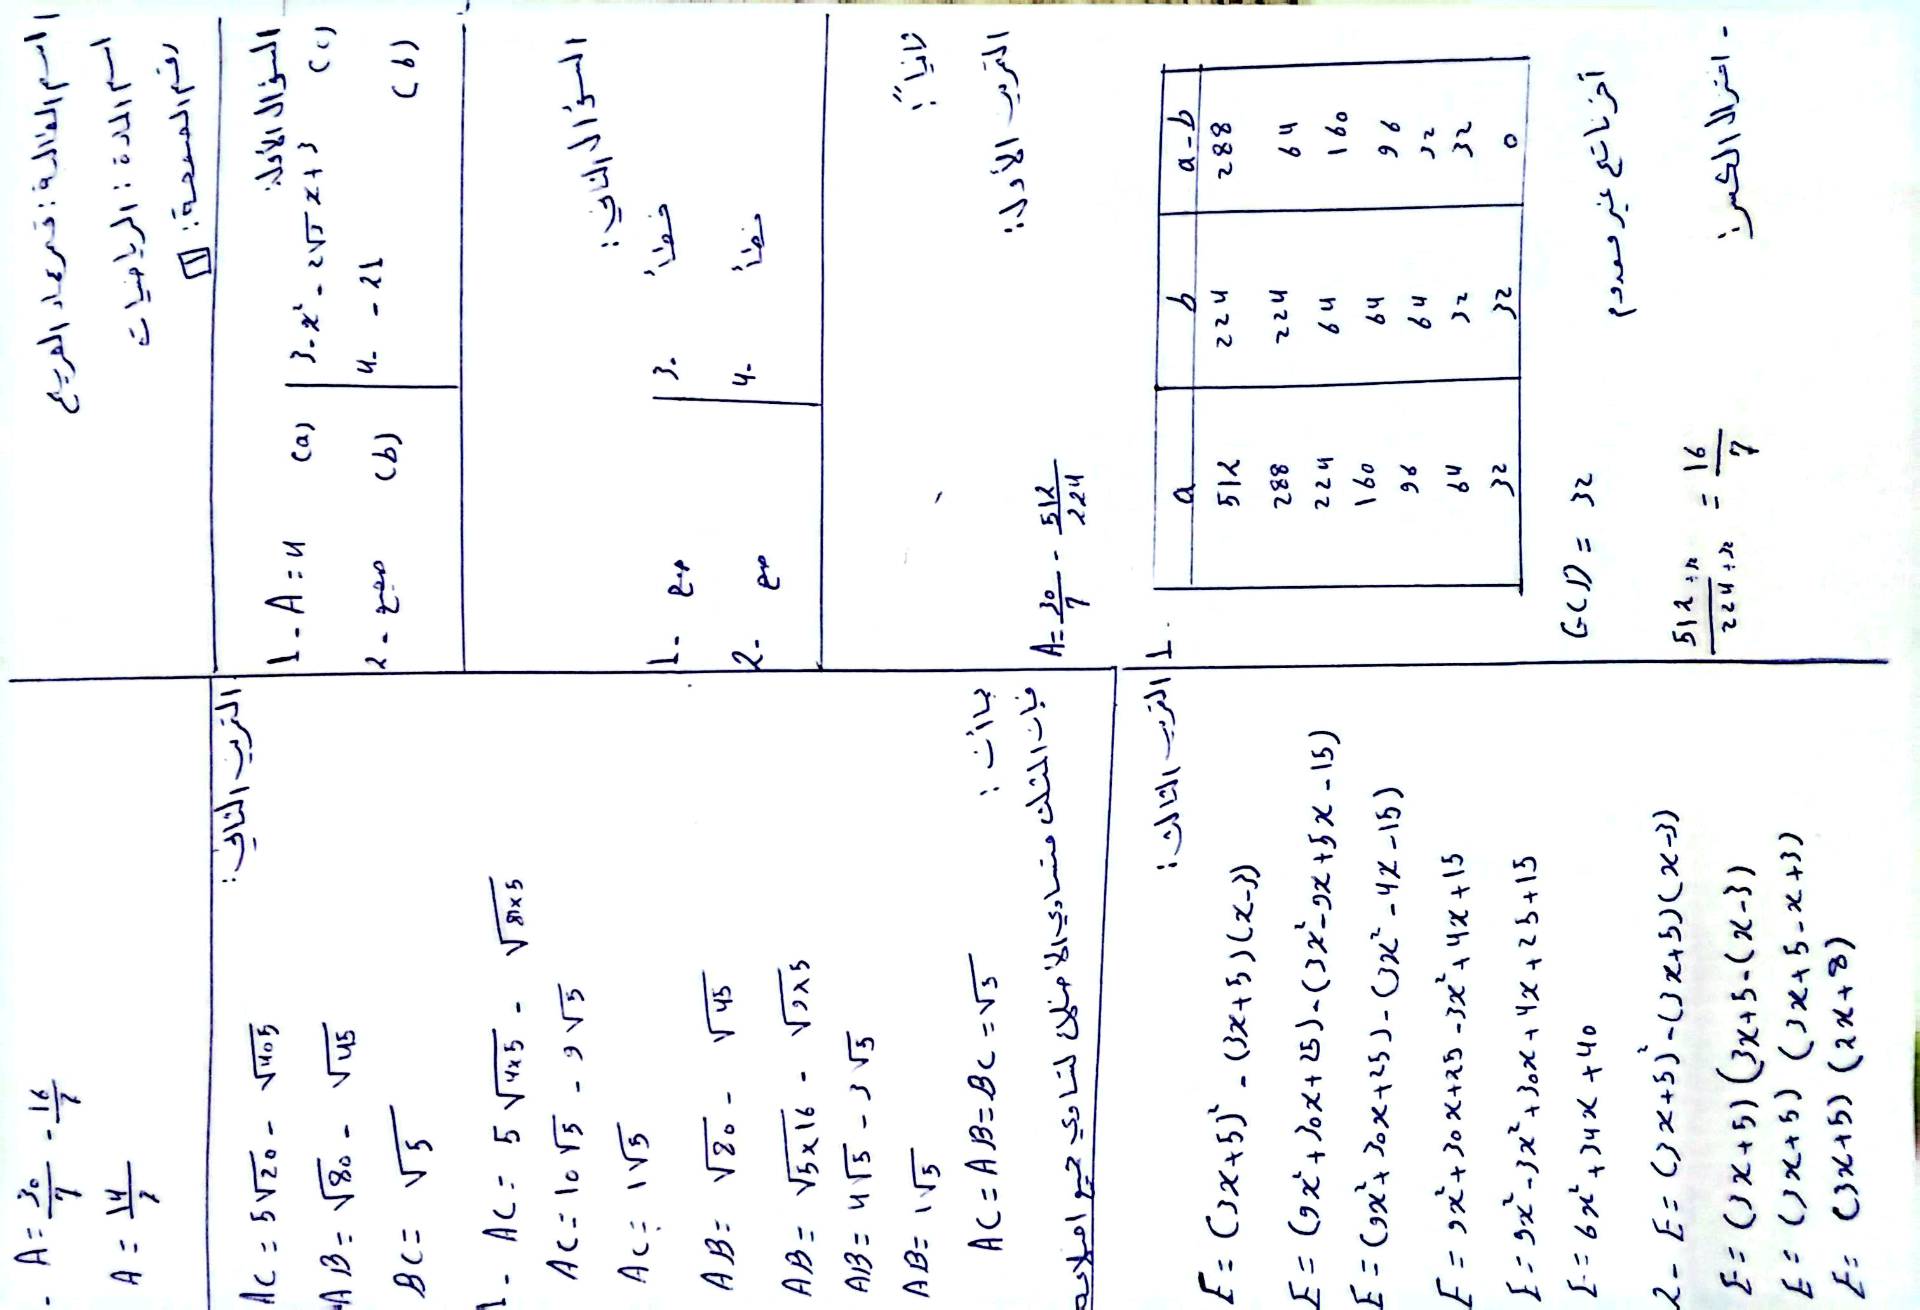 اسم الطالبة: قمر عماد المريع
اسم المادة: الرياضيات
رقم الصفحة: 1
السؤال الأول:
1- A=4 (a)
2- صحيح (b)
3- x² - 2√3 x + 3 (c)
4- -21 (b)
السؤال الثاني:
1- صح
2- صح
3- خطأ
4- خطأ
ثانياً:
التمرين الأول:
A = 30/7 - 512/224
1.
a b a-b
512 224 288
288 224 64
224 64 160
160 64 96
96 64 32
64 32 32
32 32 0
آخر ناتج غير معدوم
GCD = 32
- اختزال الكسر:
512÷32 / 224÷32 = 16/7
- A = 30/7 - 16/7
A = 14/7
التمرين الثاني:
AC = 5√20 - √405
AB = √80 - √45
BC = √5
1- AC = 5√4x5 - √81x5
AC = 10√5 - 9√5
AC = 1√5
AB = √80 - √45
AB = √5x16 - √9x5
AB = 4√5 - 3√5
AB = 1√5
بما أن:
AC = AB = BC = √5
فإن المثلث متساوي الأضلاع لتساوي جميع أضلاعه
التمرين الثالث:
E = (3x+5)² - (3x+5)(x-3)
E = (9x²+30x+25) - (3x²-9x+5x-15)
E = (9x²+30x+25) - (3x²-4x-15)
E = 9x²+30x+25-3x²+4x+15
E = 9x²-3x²+30x+4x+25+15
E = 6x²+34x+40
2- E = (3x+5)² - (3x+5)(x-3)
E = (3x+5)(3x+5-(x-3)
E = (3x+5)(3x+5-x+3)
E = (3x+5)(2x+8)